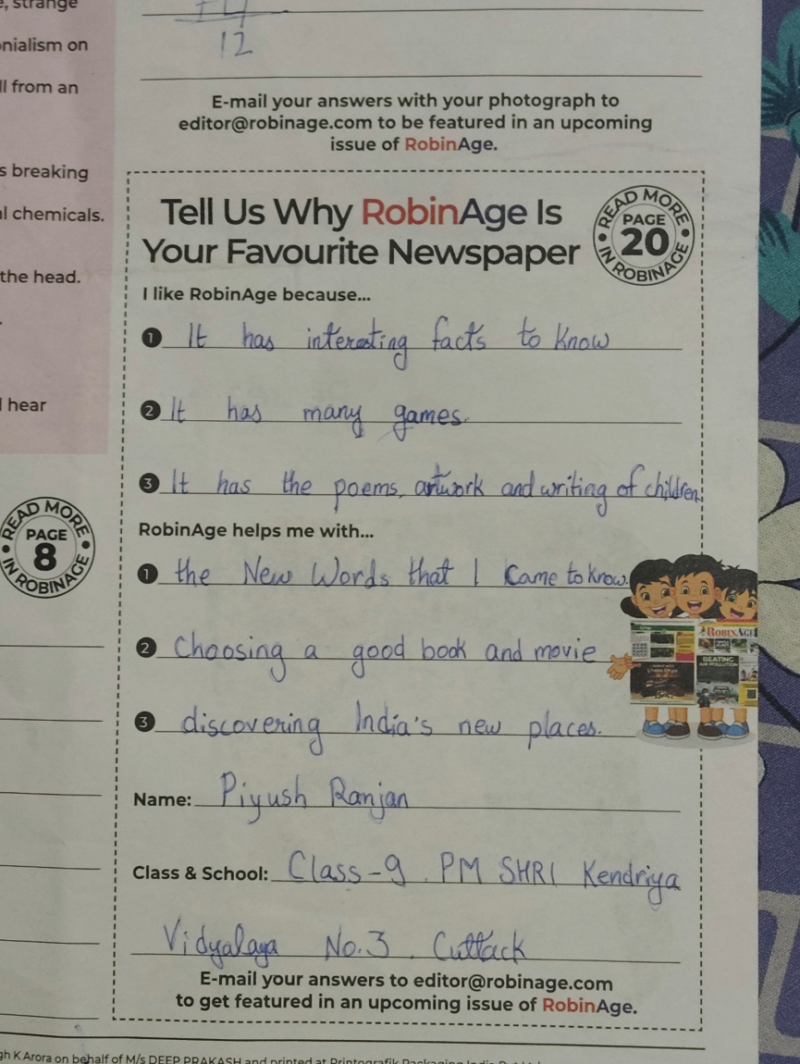 , strange
nialism on
ll from an
s breaking
l chemicals.
the head.
hear
READ MORE
PAGE
8
IN ROBINAGE
12
E-mail your answers with your photograph to
editor@robinage.com to be featured in an upcoming
issue of RobinAge.
Tell Us Why RobinAge Is
Your Favourite Newspaper
READ MORE
PAGE
20
IN ROBINAGE
I like RobinAge because...
1 It has interesting facts to know
2 It has many games.
3 It has the poems, artwork and writing of children.
RobinAge helps me with...
1 the New Words that I Came to know.
2 Choosing a good book and movie
3 discovering India's new places.
ROBINAGE
Name: Piyush Ranjan
Class & School: Class-9, PM SHRI Kendriya
Vidyalaya No.3, Cuttack
E-mail your answers to editor@robinage.com
to get featured in an upcoming issue of RobinAge.
gh K Arora on behalf of M/s DEEP PRAKASH and printed at Printografik Packaging India